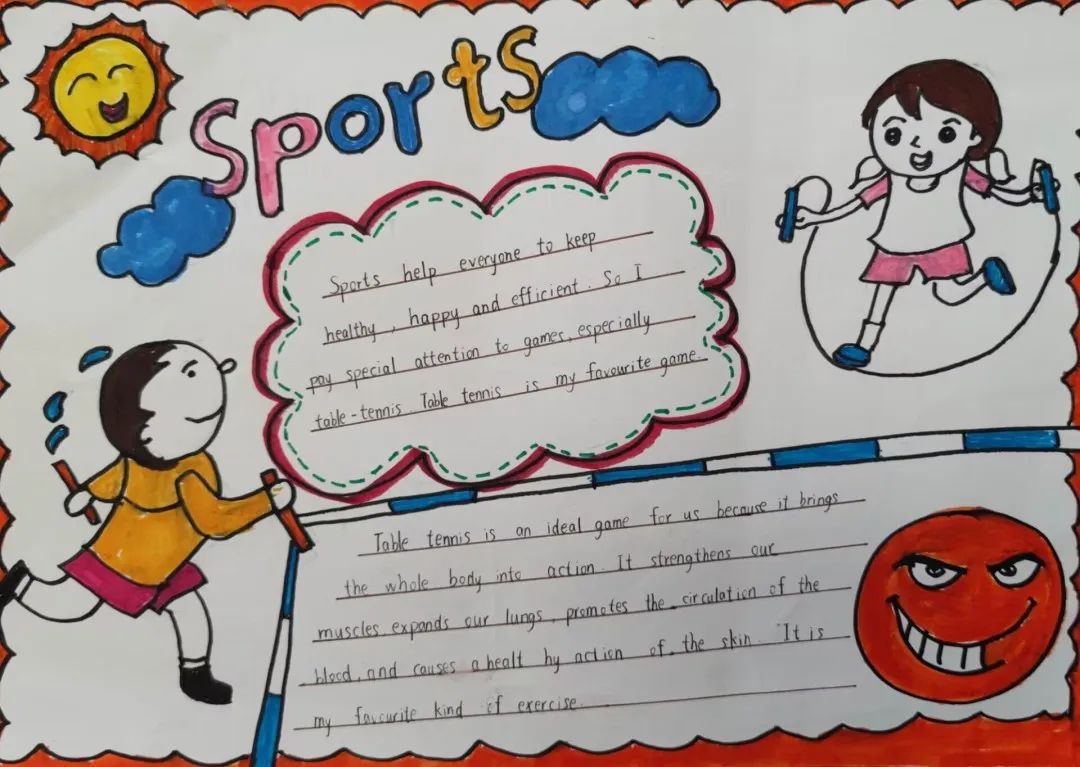 Sports
Sports help everyone to keep
healthy, happy and efficient. So I
pay special attention to games, especially
table-tennis. Table tennis is my favourite game.
Table tennis is an ideal game for us because it brings
the whole body into action. It strengthens our
muscles, expands our lungs, promotes the circulation of the
blood, and causes a healt hy action of the skin. It is
my favourite kind of exercise.